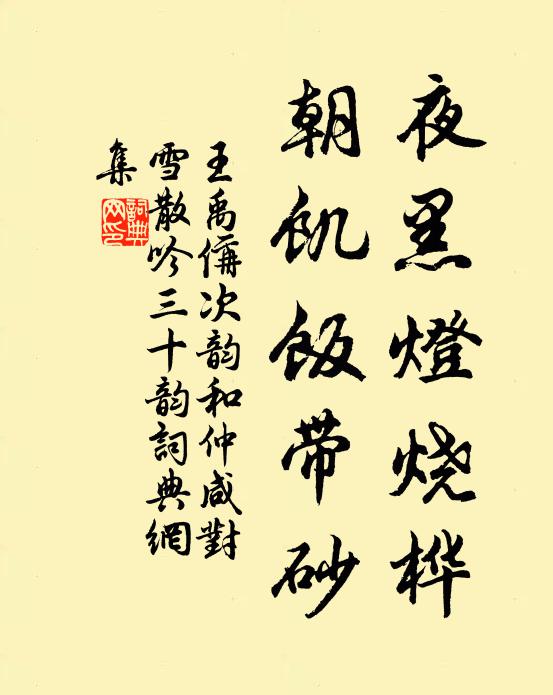 夜黑燈烧桦
朝飢飯带砂
王禹偁次韵和仲咸對
雪散吟三十韵詞典網
集
詞典網印